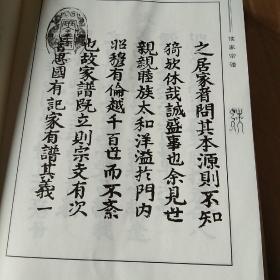 之居家者問其本源則不知
猗欤休哉誠盛事也余見世
親親睦族太和洋溢扵門内
昭穆有倫越千百世而不紊
也故家譜既立則宗支有次
書思國有記家有譜其義一
家宗譜